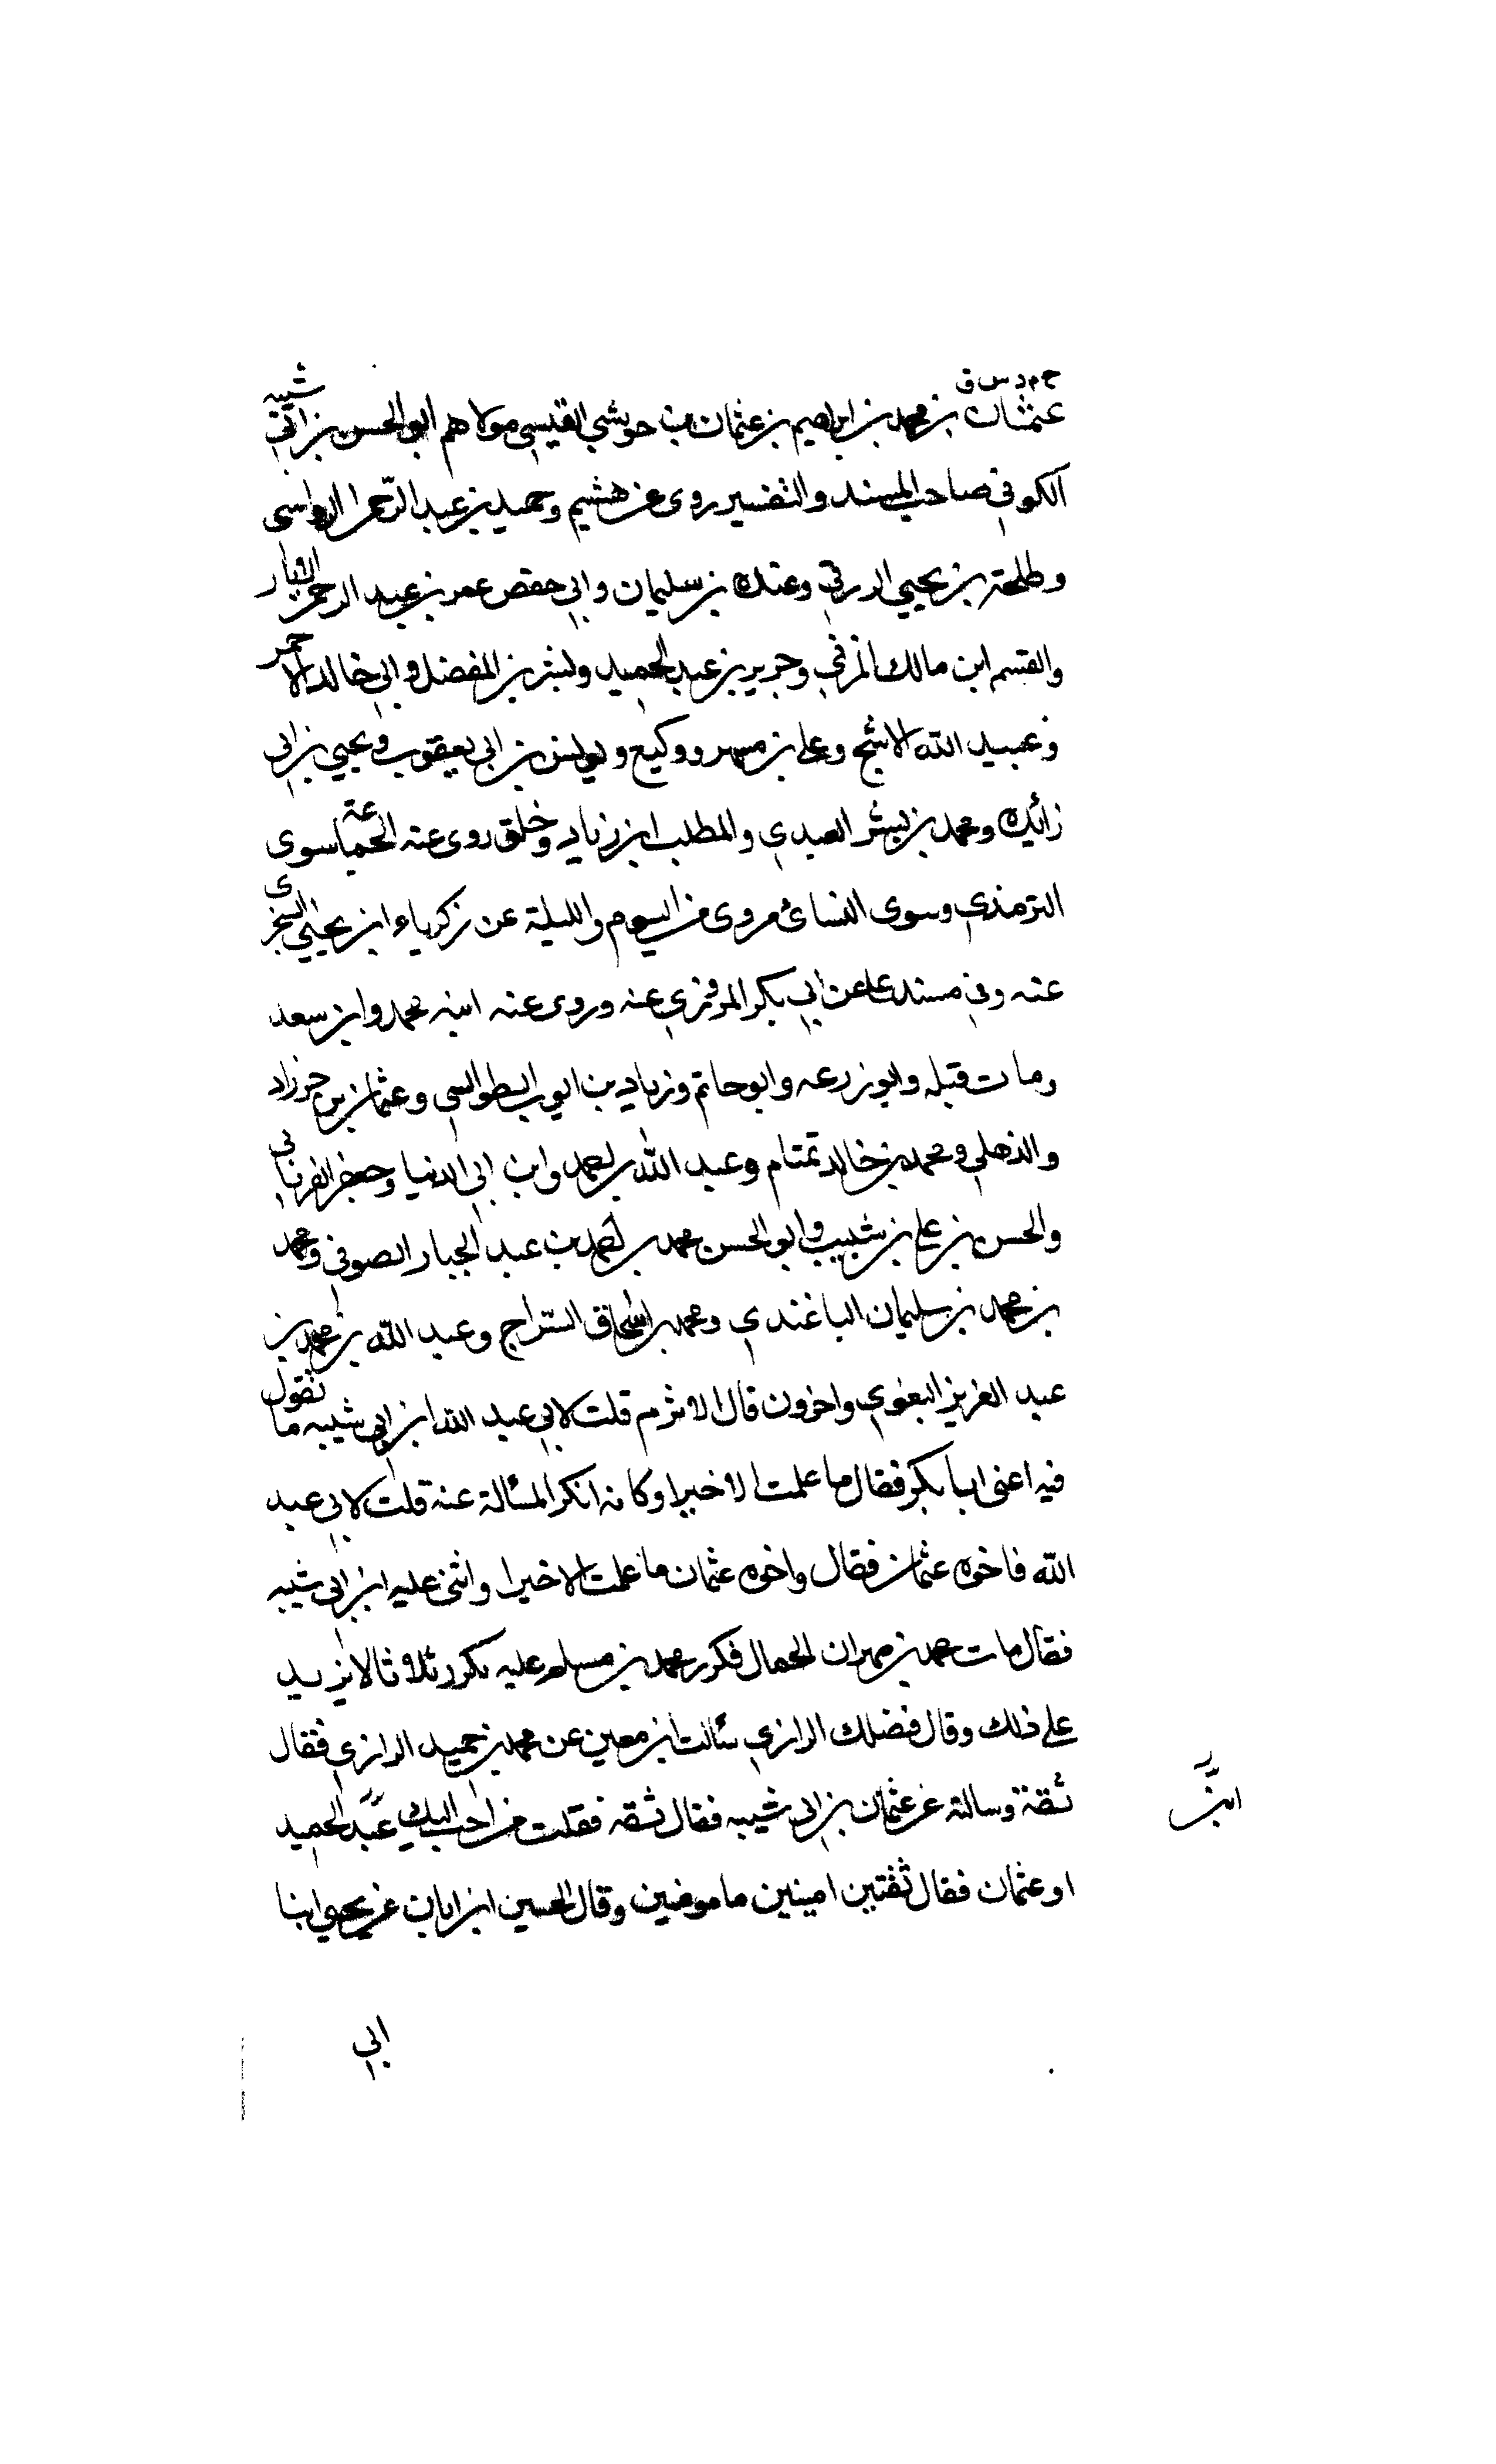 خ م د س ق
عثمان بن محمد بن ابراهيم بن عثمان بن خواستي العبسي مولاهم ابو الحسن بن ابي شيبه
الكوفي صاحب المسند والتفسير روى عن هشيم وحميد بن عبد الرحمن الرواسى
وطلحة بن يحيي الزرقي وعبدة بن سليمان وابي حفص عمر بن عبد الرحمن الابار
والقسم ابن مالك المزني وجرير بن عبد الحميد وبشر بن المفضل وابي خالد الاحمر
وعبيد الله الاشجعي وعلي بن مسهر ووكيع ويونس بن ابي يعقوب ويحيي بن ابي
زائدة ومحمد بن بشر العبدي والمطلب ابن زياد وخلق روى عنه الجماعة سوى
الترمذي وسوى النسائ فروى في اليوم والليلة عن زكرياء ابن يحيي السجزى
عنه وفي مسند علي عن ابي بكر المروزي عنه وروى عنه ابنه محمد وابن سعد
ومات قبله وابو زرعه وابو حاتم وزياد بن ايوب الطوسي وعثمان بن خرزاد
والذهلي ومحمد بن خالد تمتام وعبد الله بن احمد وابن ابي الدنيا وجعفر الفريابي
والحسن بن علي بن شبيب وابو الحسن محمد بن احمد بن عبد الجبار الصوفي ومحمد
بن محمد بن سليمان الباغندي ومحمد بن اسحاق السراج وعبد الله بن محمد بن
عبد العزيز البغوي واخرون قال الاثرم قلت لابي عبد الله ابن ابي شيبه ما تقول
فيه اعنى ابا بكر فقال ما علمت الا خيرا وكانه انكر المسألة عنه قلت لابي عبد
الله فاخوه عثمان فقال واخوه عثمان ما علمت الا خيرا واثنى عليه ابن ابي شيبه
فقال مات محمد بن مهران الحمال فكرر محمد بن مسلم عليه يكرر ثلاثا لا يزيد
علي ذلك وقال فضلك الرازي سألت ابن معين عن محمد بن حميد الرازي فقال
ثقة وسالته عن عثمان بن ابي شيبه فقال ثقه فقلت من احب اليك عبد الحميد
ابن
او عثمان فقال ثقتين امينين مامونين وقال الحسين ابن ابان عن يحيي ابنا
ابي